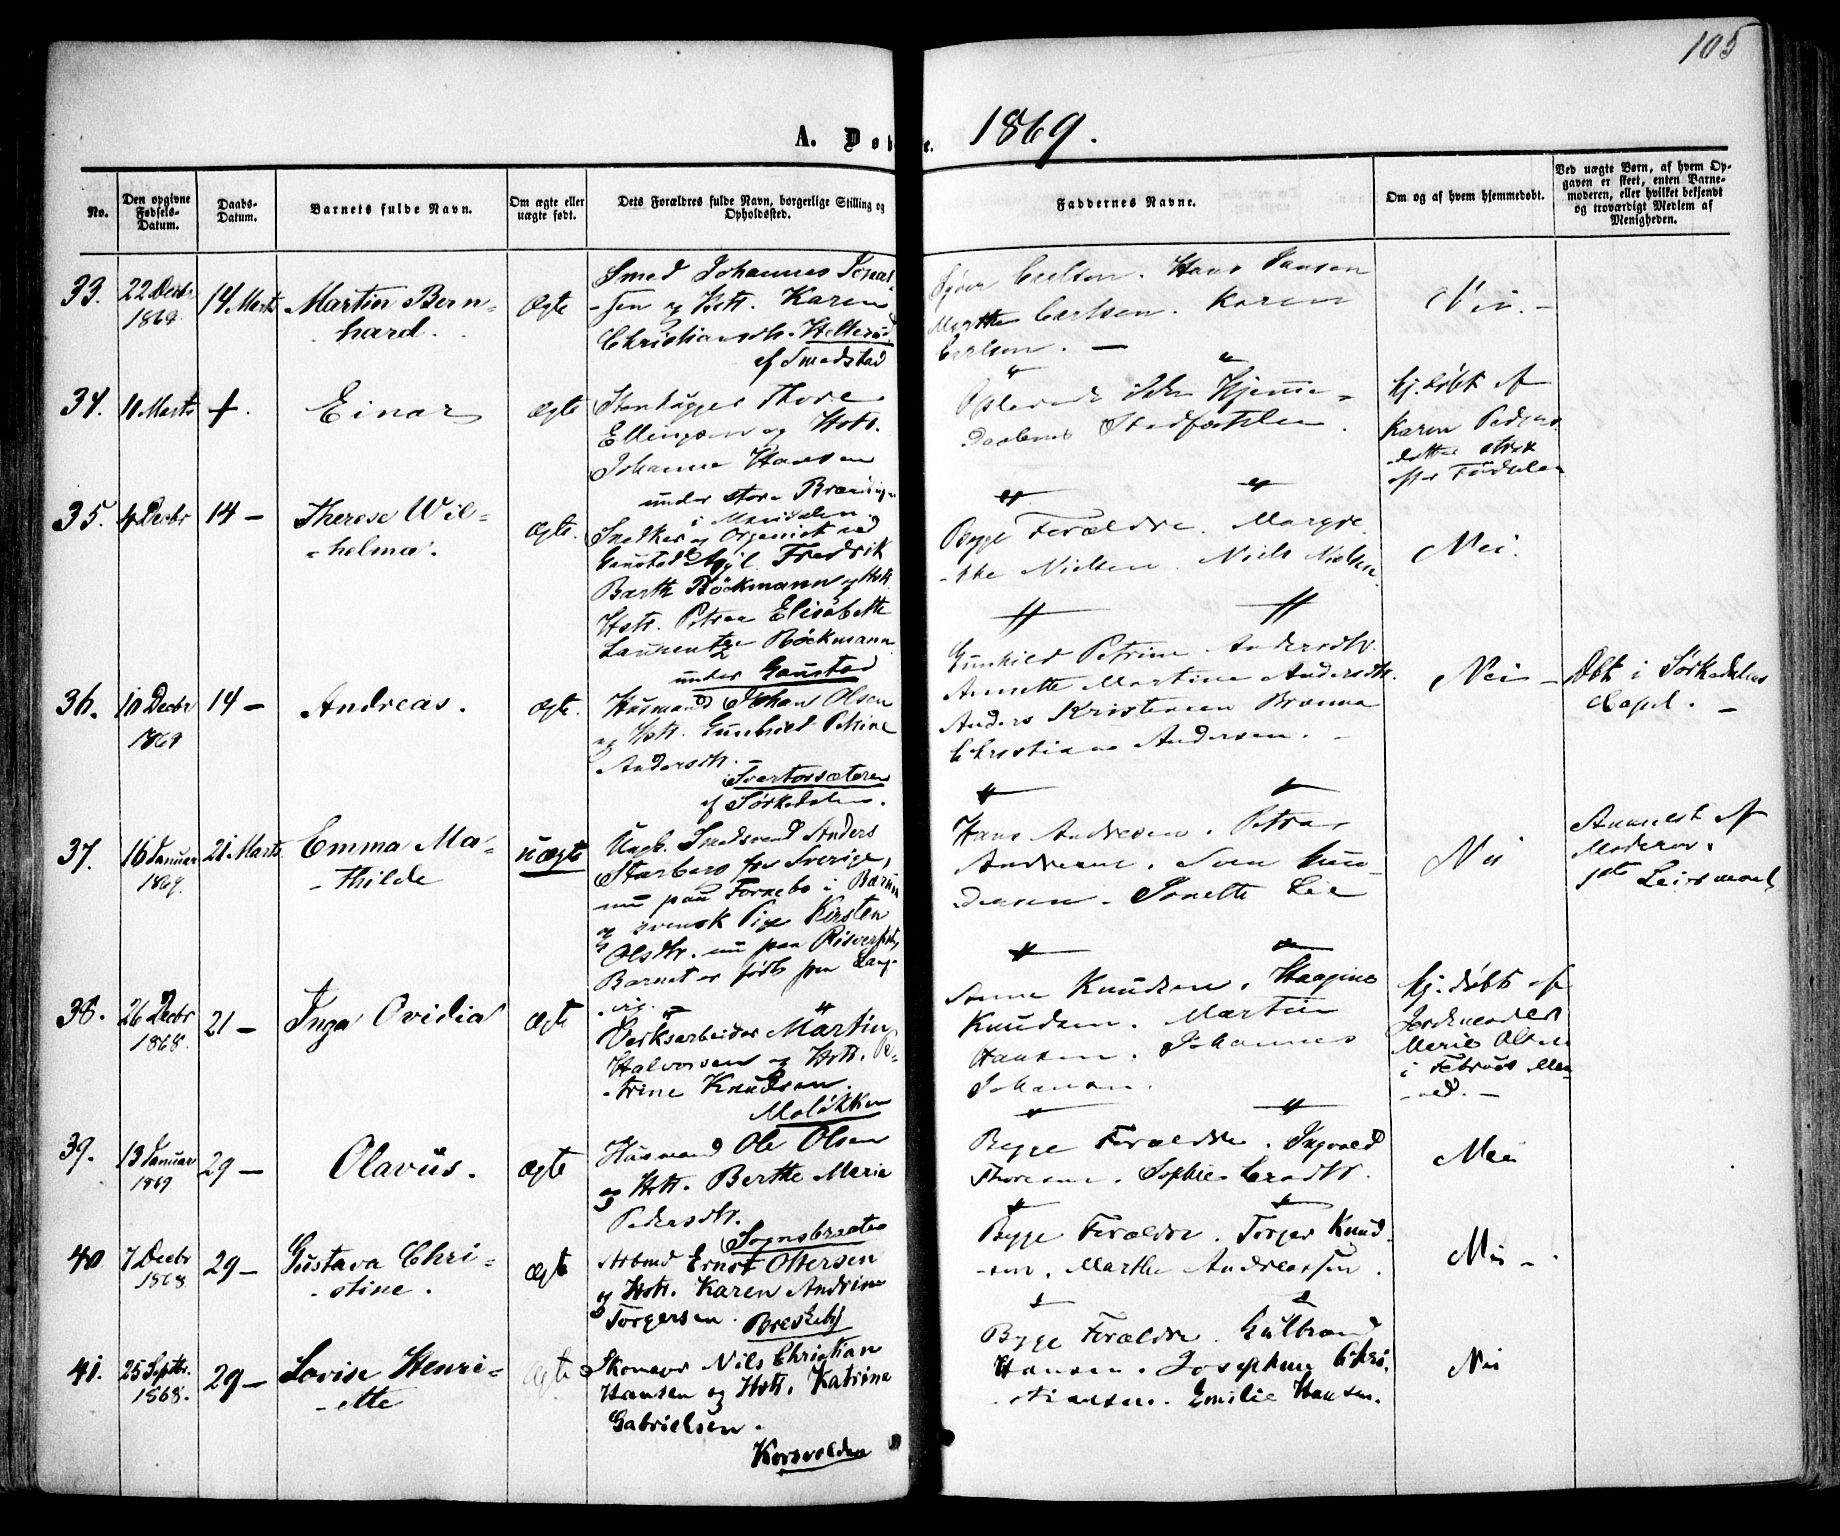 105
A. Døbte. 1869.
No.
Den opgivne Fødsels-Datum.
Daabs-Datum.
Barnets fulde Navn.
Om ægte eller uægte født.
Dets Forældres fulde Navn, borgerlige Stilling og Opholdssted.
Faddernes Navne.
Om og af hvem hjemmedøbt.
Ved uægte Børn, af hvem Opgaven er skeet, enten Barnemoderen, eller hvilket bekjendt og troværdigt Medlem af Menigheden.
33.
22 Decbr
1869
14 Marts
Martin Bern-
hard.
Ægte
Smed Johannes Jonas-
sen og Hstr. Karen
Christiansdtr. Hellerud
af Smedstad
Carlsen. Hans Jansen
Marthe Carlsen. Karen
Carlsen. —
Nei. -
34.
11 Marts
+.
Einar
Ægte
Stenhugger Thore
Ellingsen og Hstr.
Johanne Hansen
under store Brænningen
i Maridalen.
Opleved ikke Hjemme-
daabens Stadfæstelse.
hj. døbt af
Karen Peders-
datter strax
efter Fødselen
35.
4 Decbr
14 —
Therese Wil-
-helma.
Ægte.
Snedker og Organist ved
Gaustad Asyl Fredrik
Barth Röckmann og Hstr.
Hstr. Petrea Elisabeth
Laurentze Röckmann
under Gaustad
Begge Forældre. Margre-
-the Nielsen. Niels Nielsen.
Nei.
36.
10 Decbr
1869
14 —
Andreas.
Ægte.
Husmand Johans Olsen
og Hstr. Gunhild Petrine
Andersdtr. -
Svartorsæteren
af Sørkedalen.
Gunhild Petrine Andersdtr.
Annette Martine Andersdtr.
Anders Kristensen Brænna
Christiane Andersen. -
Nei -
Dbt i Sørkedalens
Capel. -
37.
16 Januar
1869.
21 Marts
Emma Ma-
-thilde
uægte
Ungk. Smedsvend Anders
Starberg fra Sverige,
nu paa Fornebo i Bærum
og svensk Pige Kirsten
Olsdtr. nu paa
Barnet er født paa Lang-
vig.
Hans Andresen. Petra
Andresen. Sven
densen. Jonette Lie
Nei
Anmeldt af
Moderen.
1ste Leiermaal
38.
26 Decbr
1868.
21 —
Inga Ovidia
Ægte
Værksarbeider Martin
Halvorsen og Hstr. Pe-
-trine Knudsen.
Moløkken
Anna Knudsen. Haagine
Knudsen. Martin
Hansen. Johannes
Johansen.
hj. døbt af
Jordemoder
Marie Olsen
i Februar Maa-
-ned. -
39.
13 Januar
1869
29 —
Olavus.
Ægte
Husmand Ole Olsen
og Hstr. Berthe Marie
Pedersdtr.
Sognsbraaten
Begge Forældre. Ingvald
Thoresen. Sophie
Nei
40
7 Decbr
1868
29 —
Gustava Chri-
-stine.
Ægte
Arbmd Ernst Ottersen
og Hstr. Karen Andrine
Torgersen. Breskeby
Begge Forældre. Torger Knud-
-sen. Marthe Andreassen.
Nei -
41.
25 Septbr.
1868.
29 —
Lovise Henri-
-ette
Ægte
Skomager Nils Christian
Hansen og Hstr. Katrine
Gabrielsen.
Korsvolden
Begge Forældre. Gulbrand
Hansen. Josephine Chri-
-stiansen. Emilie Hansen.
Nei